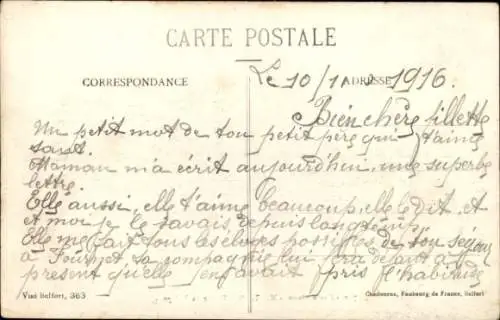 CARTE POSTALE
CORRESPONDANCE
ADRESSE
Le 10/1 1916.
Bien chère fillette
Un petit mot de ton petit père qui t'aime
tant.
Maman m'a écrit aujourd'hui, une superbe
lettre.
Elle aussi, elle t'aime beaucoup, elle le dit et
et moi je le savais depuis longtemps.
Elle me fait tous les éloges possibles de ton séjour
à sa compagnie lui fera défaut à
présent qu'elle en avait pris l'habitude
Visé Belfort, 363
Chadourne, Faubourg de France, Belfort